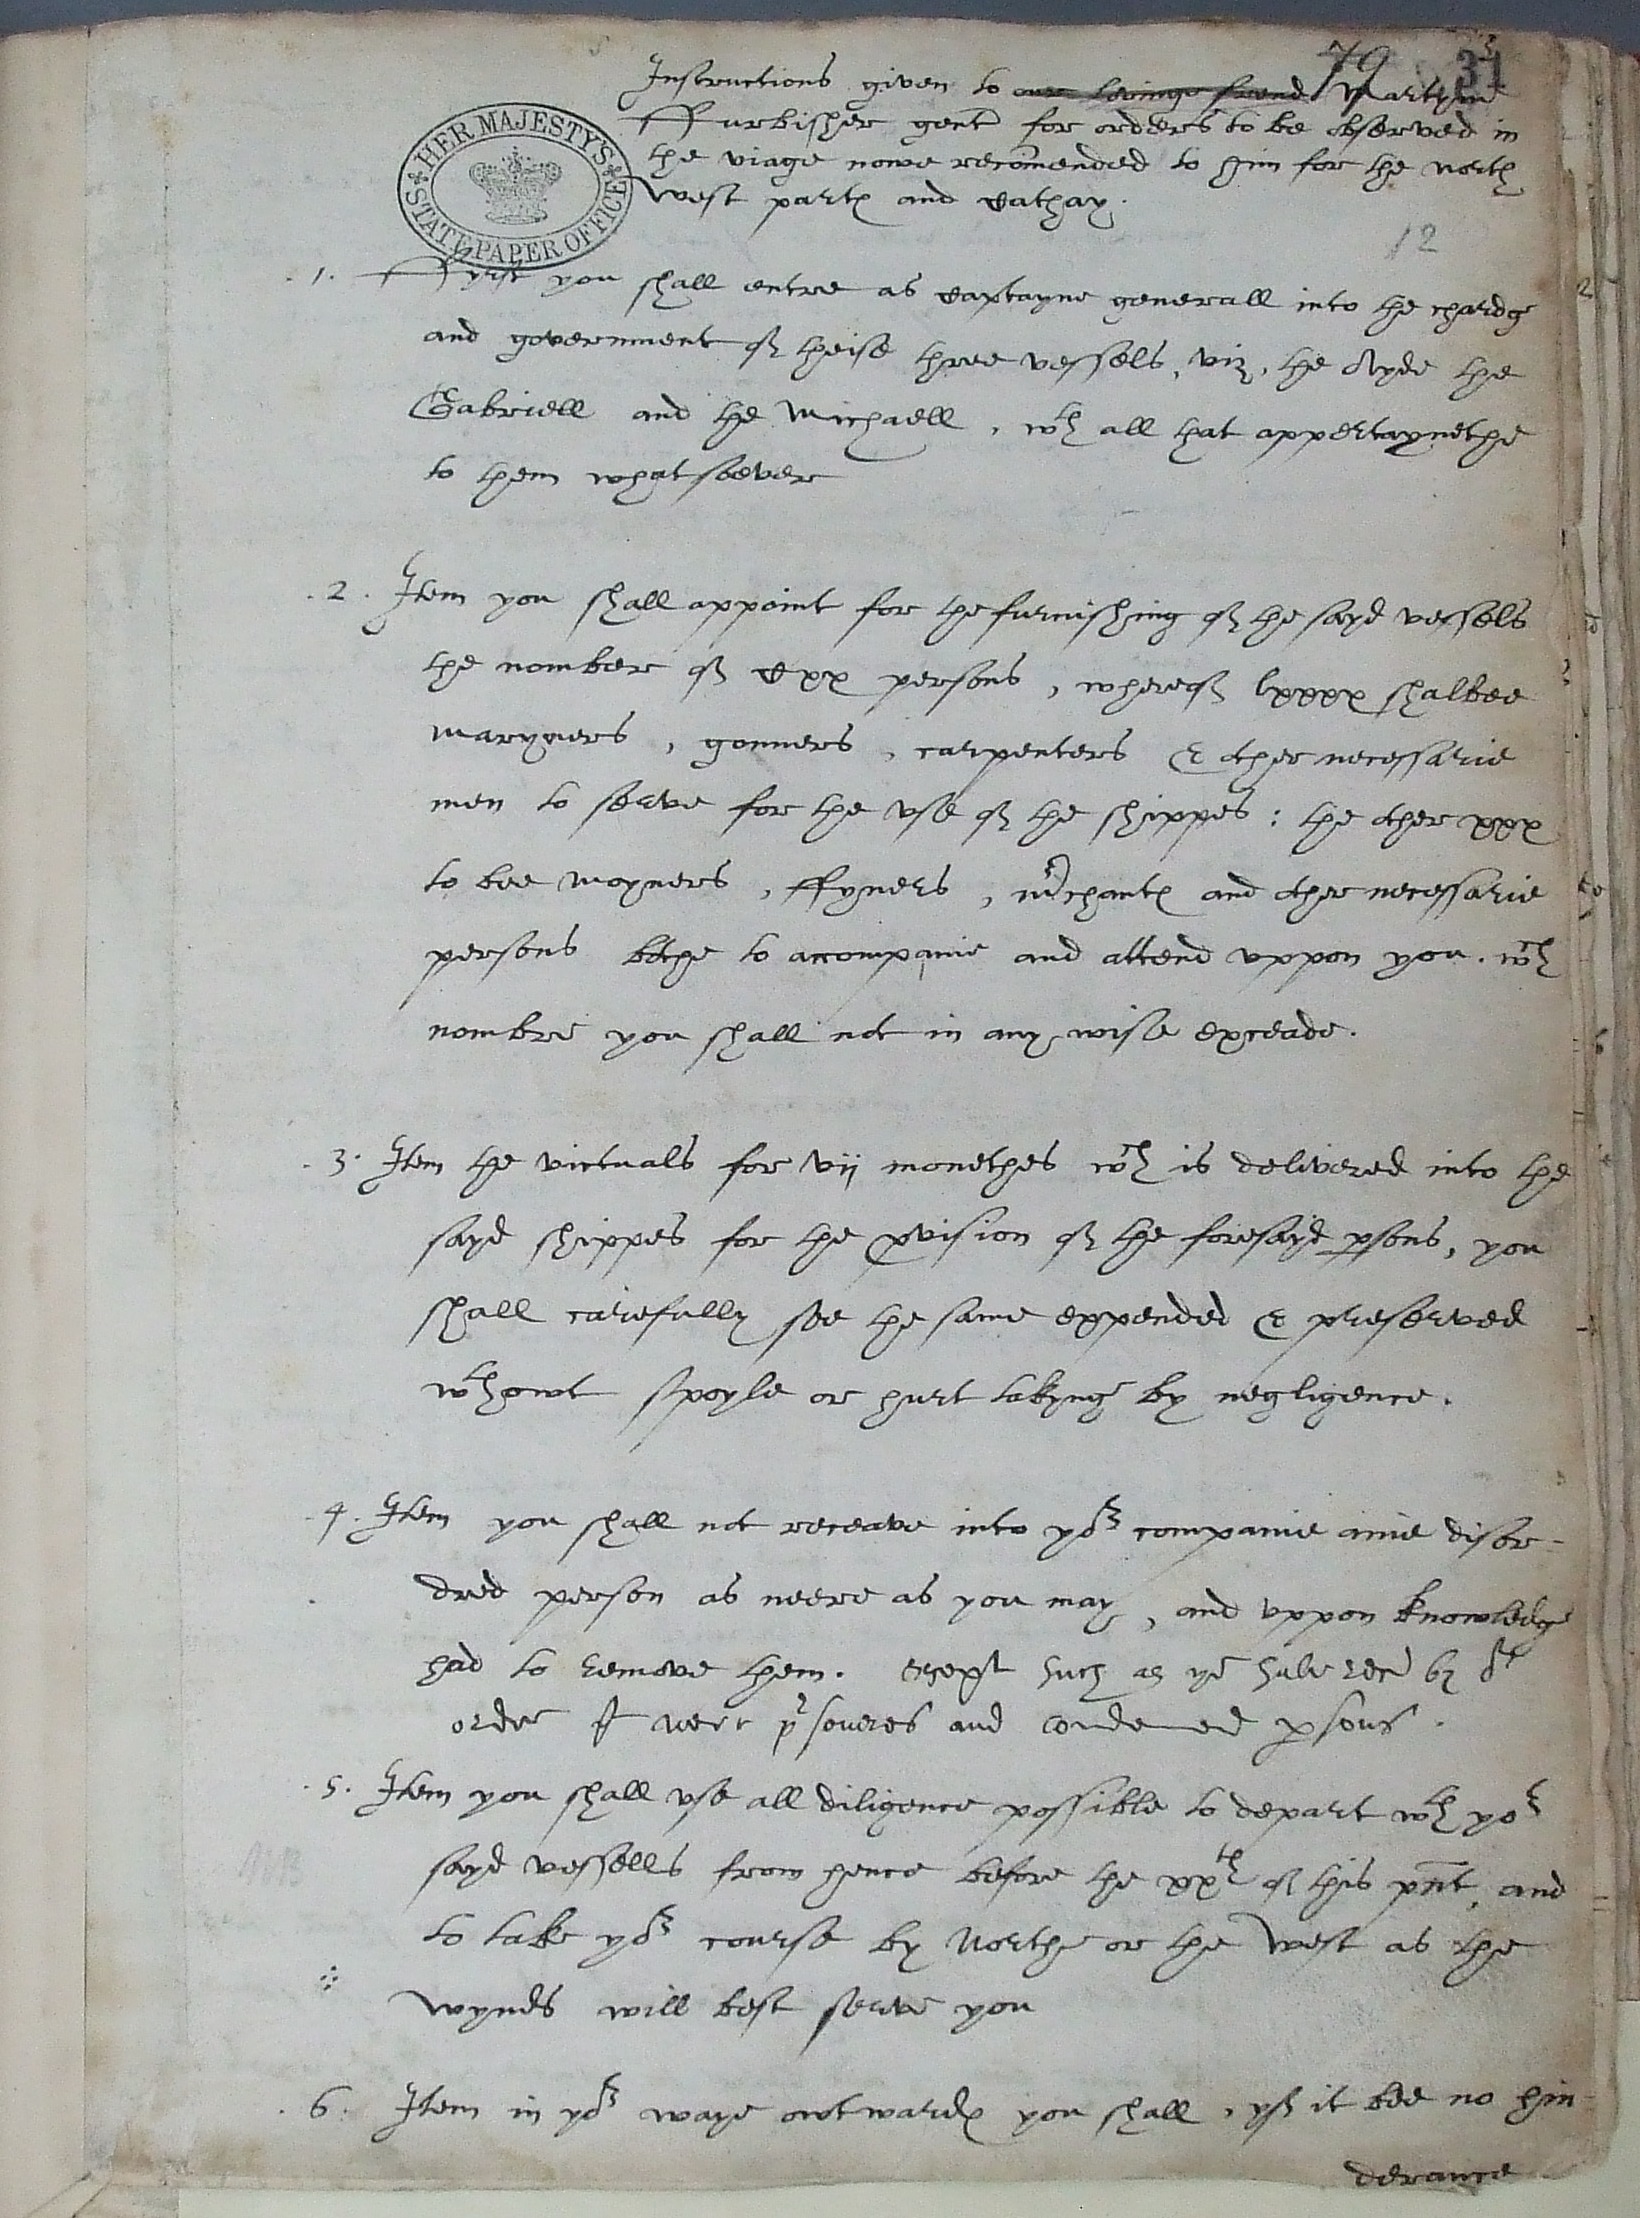 79 31
Instructions given to our lovinge frend Martyn
ffurbisher gent for orders to be observed in
the viage nowe recomended to him for the north
west partes and Cathay.
12
HER MAJESTY'S STATE PAPER OFFICE
.1. ffyrst you shall entre as Captayne generall into the chardge
and government of theise three vessels, viz, the Ayde the
Gabriell and the Michaell, wth all that appertaynethe
to them whatsoever
.2. Item you shall appoint for the furnishing of the sayd vessels
the nomber of Cxx persons, whereof lxxxx shalbee
maryners, gonners, carpenters & other necessarie
men to serve for the use of the shippes: the other xxx
to bee moyners, ffyners, mrchantes and other necessarie
persons bothe to accompanie and attend uppon you. wch
nombre you shall not in any wise exceade.
.3. Item the victuals for vij monethes wch is delivered into the
sayd shippes for the pvision of the foresayd psons, you
shall carefully see the same expended & preserved
wthowt spoyle or hurt takynge by negligence.
.4. Item you shall not receave into yor companie anie disor-
dred person as neere as you may, and uppon knowledge
had to remove them. except such as ye have recd by or
order yt were prsoners and condemned psons.
.5. Item you shall use all diligence possible to depart wth yor
sayd vessells from hence before the xxth of this pnt, and
to take yor course by Northe or the West as the
wynds will best serve you
.6. Item in yor waye owtwardes you shall, yf it bee no hin-
derance